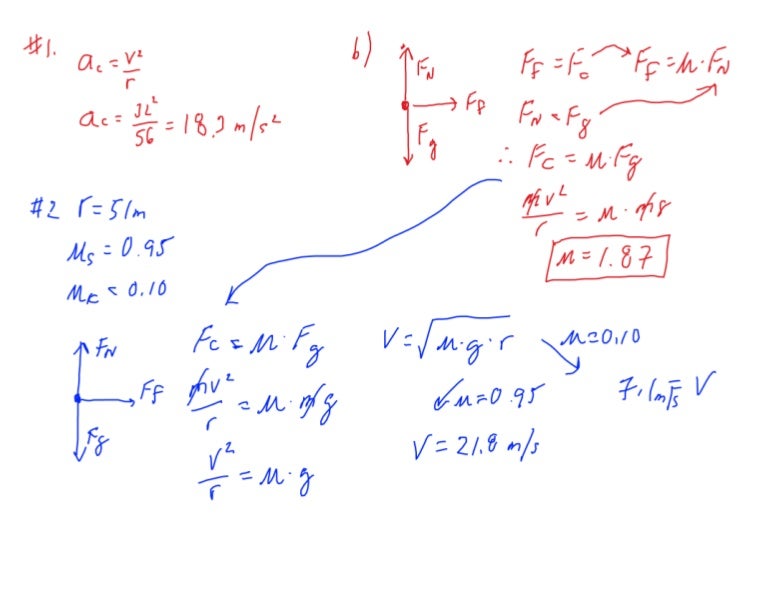 #1.
a_c = v²/r
a_c = 32²/56 = 18.3 m/s²
b)
F_N
F_f
F_g
F_f = F_c → F_f = μ·F_N
F_N = F_g
∴ F_c = μ·F_g
mv²/r = μ·mg
μ = 1.87
#2 r = 51m
μ_s = 0.95
μ_k = 0.10
F_N
F_f
F_g
F_c = μ·F_g
mv²/r = μ·mg
v²/r = μ·g
V = √μ·g·r
μ = 0.10
μ = 0.95
7.1 m/s V
V = 21.8 m/s